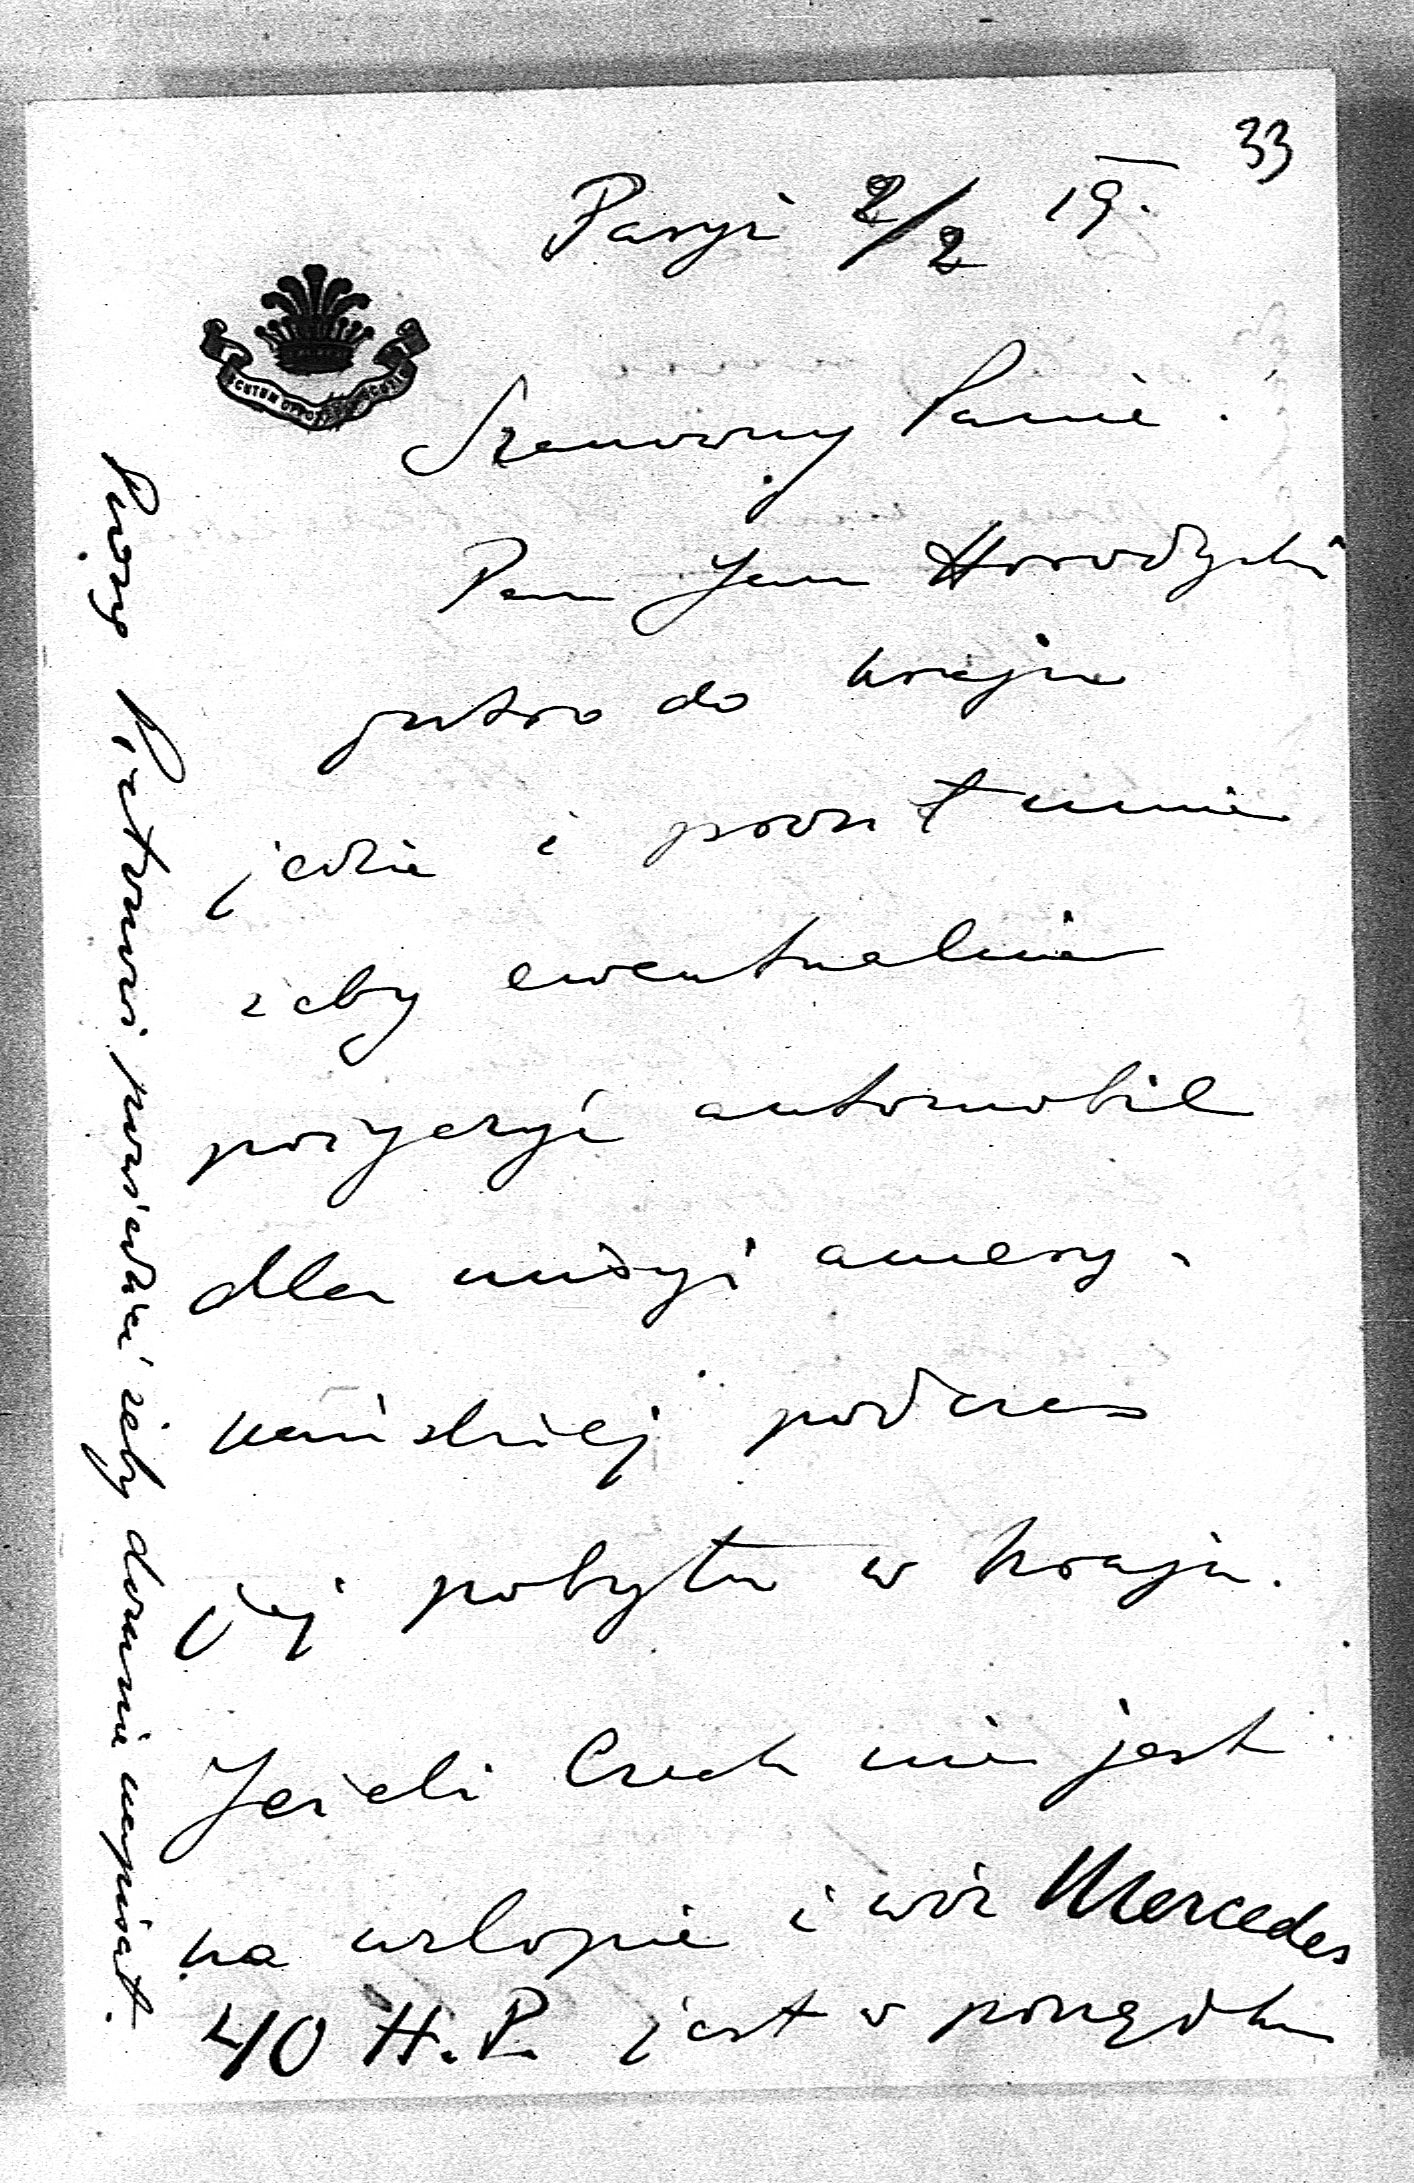 33
Paryż 2/2 19.
SCUTUM OPPONEBAT SCUTIS
Szanowny Panie.
Pan Jan Horodyski
jutro do kraju
jedzie i prosił mnie
żeby ewentualnie
pożyczyć automobil
dla misyi amery-
kańskiej podczas
jej pobytu w kraju.
Jeżeli Czech nie jest
na urlopie i wóz Mercedes
40 H.P. jest w porządku
Proszę Pietrowi powiedzieć żeby do mnie napisał.